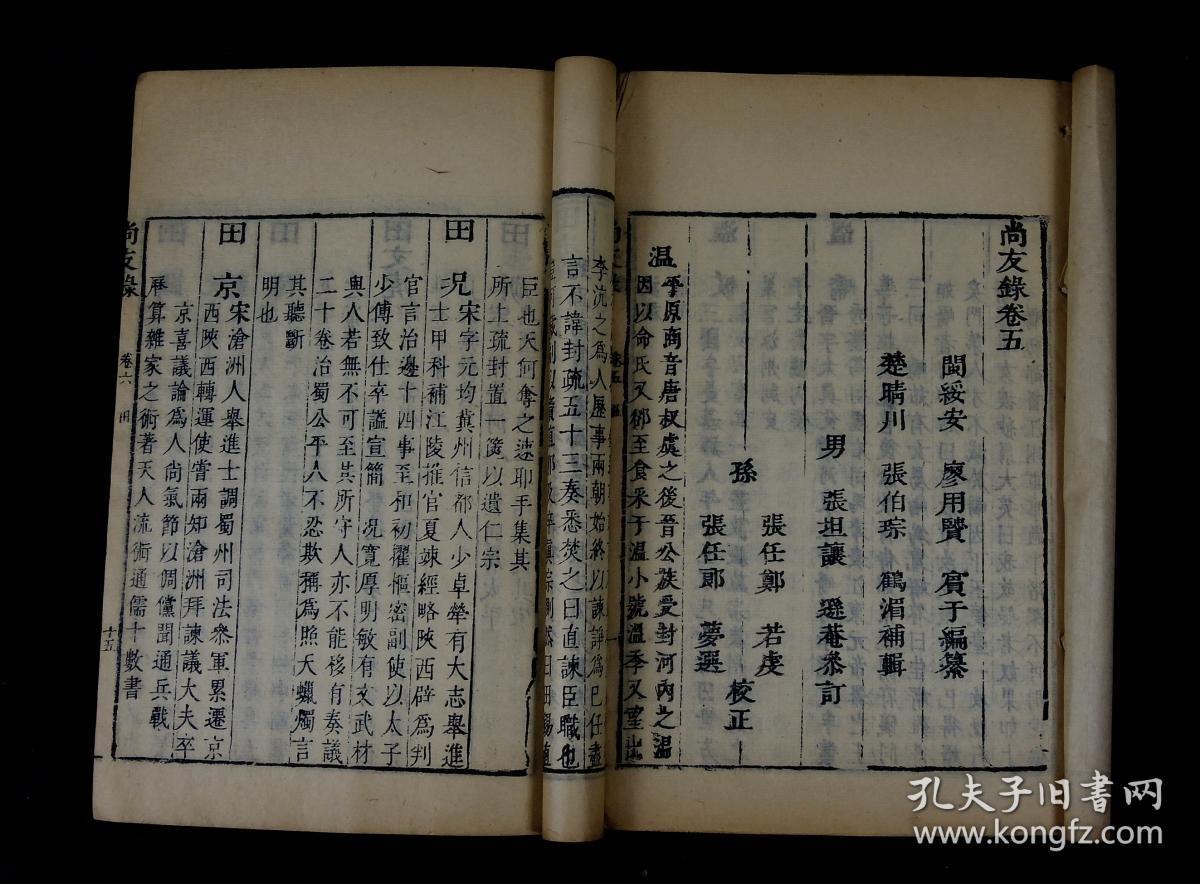 尚友錄卷五
閩綏安 廖用賢 賔于編纂
楚晴川 張伯琮 鶴湄補輯
男 張坦讓 遜菴叅訂
張任鄭 若虔
孫 校正
張任郎 夢選
温 平原商音唐叔虞之後晋公族受封河內之温
因以命氏又郤至食采于溫小號溫季又望出
尚友錄 卷五
李沆之爲人歷事兩朝始終以諫諍爲己任盡
言不諱封疏五十三奏悉焚之曰直諫臣職也
臣也天何奪之速耶手集其
所上疏封置一篋以遺仁宗
田 況 宋字元均冀州信都人少卓犖有大志舉進
士甲科補江陵推官夏竦經略陜西辟爲判
官言治邊十四事至和初擢樞密副使以太子
少傅致仕卒謚宣簡 況寬厚明敏有文武材
與人若無不可至其所守人亦不能移有奏議
二十卷治蜀公平人不忍欺稱爲照天蠟燭言
其聽斷
明也
田 京 宋滄洲人舉進士調蜀州司法叅軍累遷京
西陜西轉運使嘗兩知滄洲拜諫議大夫卒
京喜議論爲人尙氣節以倜儻聞通兵戰
曆算雜家之術著天人流術通儒十數書
尚友錄 卷六 田 十五
孔夫子旧书网
www.kongfz.com